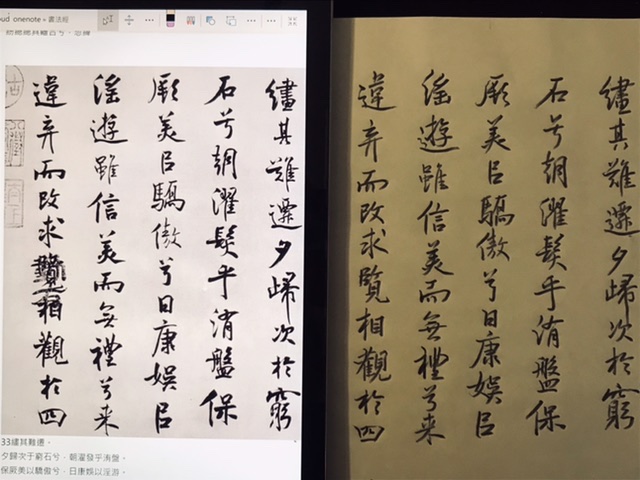 oud onenote » 書法經
33繣其難遷。
夕歸次于窮石兮，朝濯發乎洧盤。
保厥美以驕傲兮，日康娛以淫游。
繣其難遷夕歸次於窮
石兮朝濯髮乎洧盤保
厥美㠯驕傲兮日康娛㠯
淫遊雖信美而無禮兮来
違弃而改求覽相觀於四
繣其難遷夕歸次於窮
石兮朝濯髮乎洧盤保
厥美㠯驕傲兮日康娛㠯
淫遊雖信美而無禮兮来
違弃而改求覽相觀於四